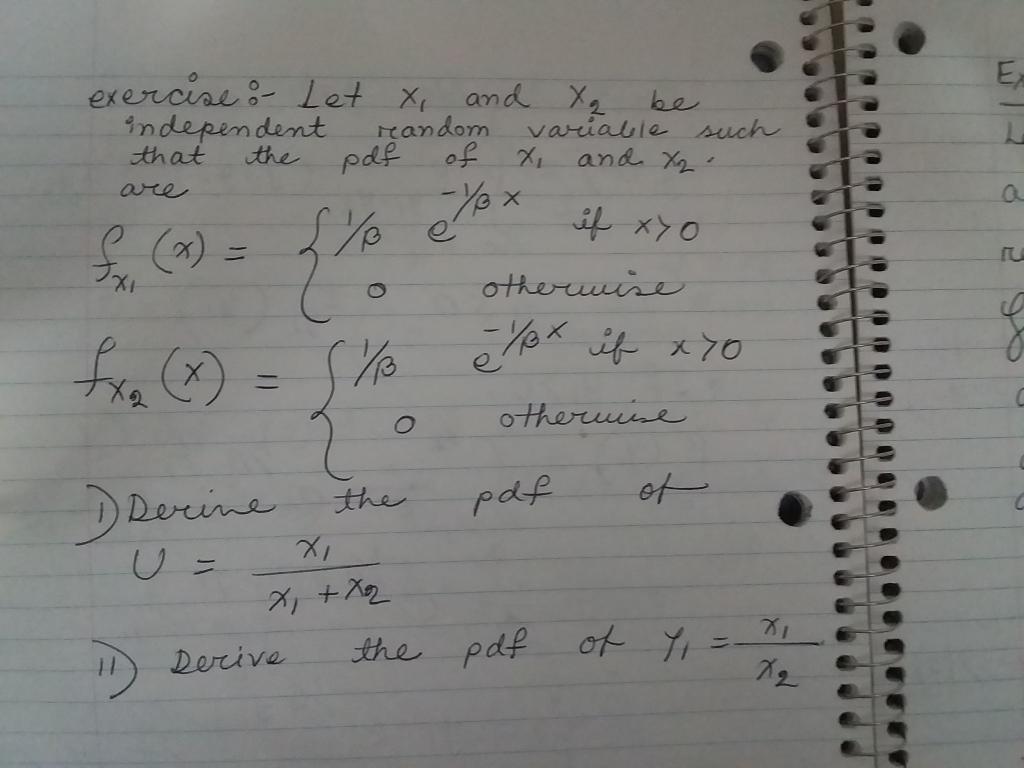 exercise :- Let X₁ and X₂ be
independent random variable such
that the pdf of X₁ and X₂.
are
f_{X₁}(x) = { 1/β e^{-1/β x} if x>0
0 otherwise
f_{X₂}(x) = { 1/β e^{-1/β x} if x>0
0 otherwise
I) Derive the pdf of
U = X₁ / (X₁ + X₂)
II) Derive the pdf of Y₁ = X₁ / X₂